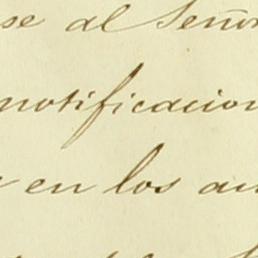 se al Señor
notificacion
en los au